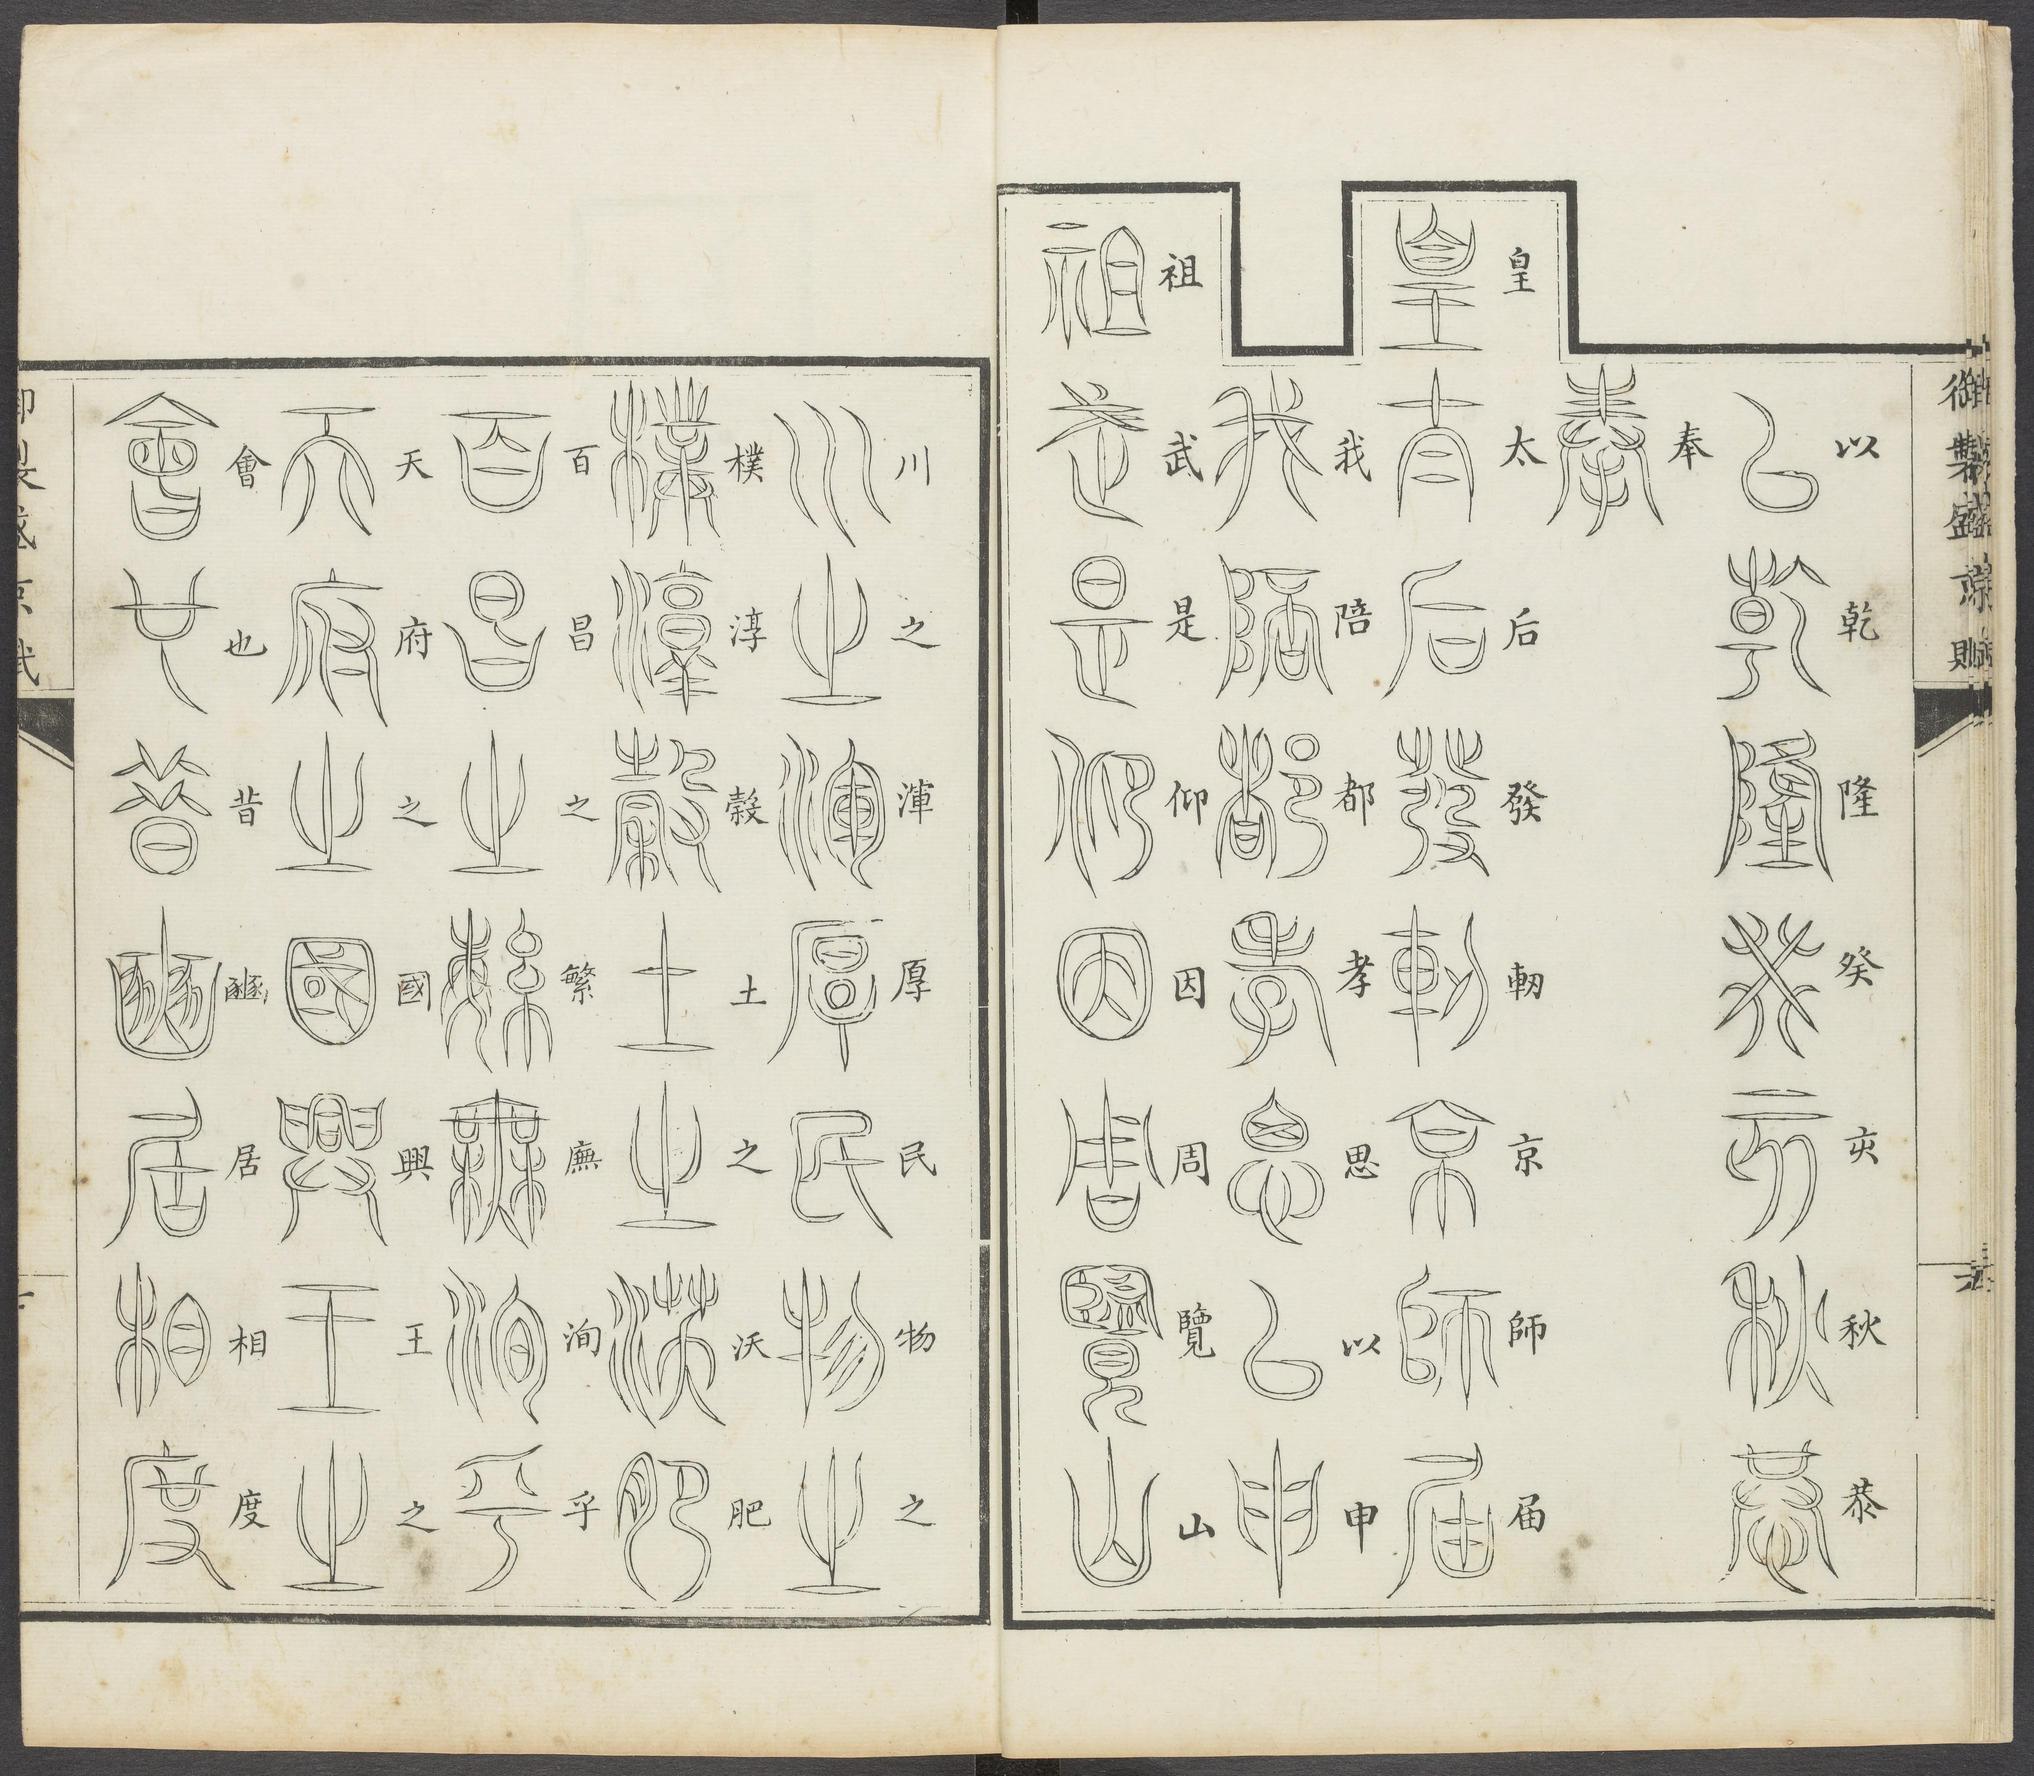 御製盛京賦
以乾隆癸亥秋恭
奉
皇太后發軔京師届
我陪都孝思以申
祖武是仰因周覽山
川之渾厚民物之
樸淳穀土之沃肥
百昌之繁廡洵乎
天府之國興王之
會也昔豳居相度